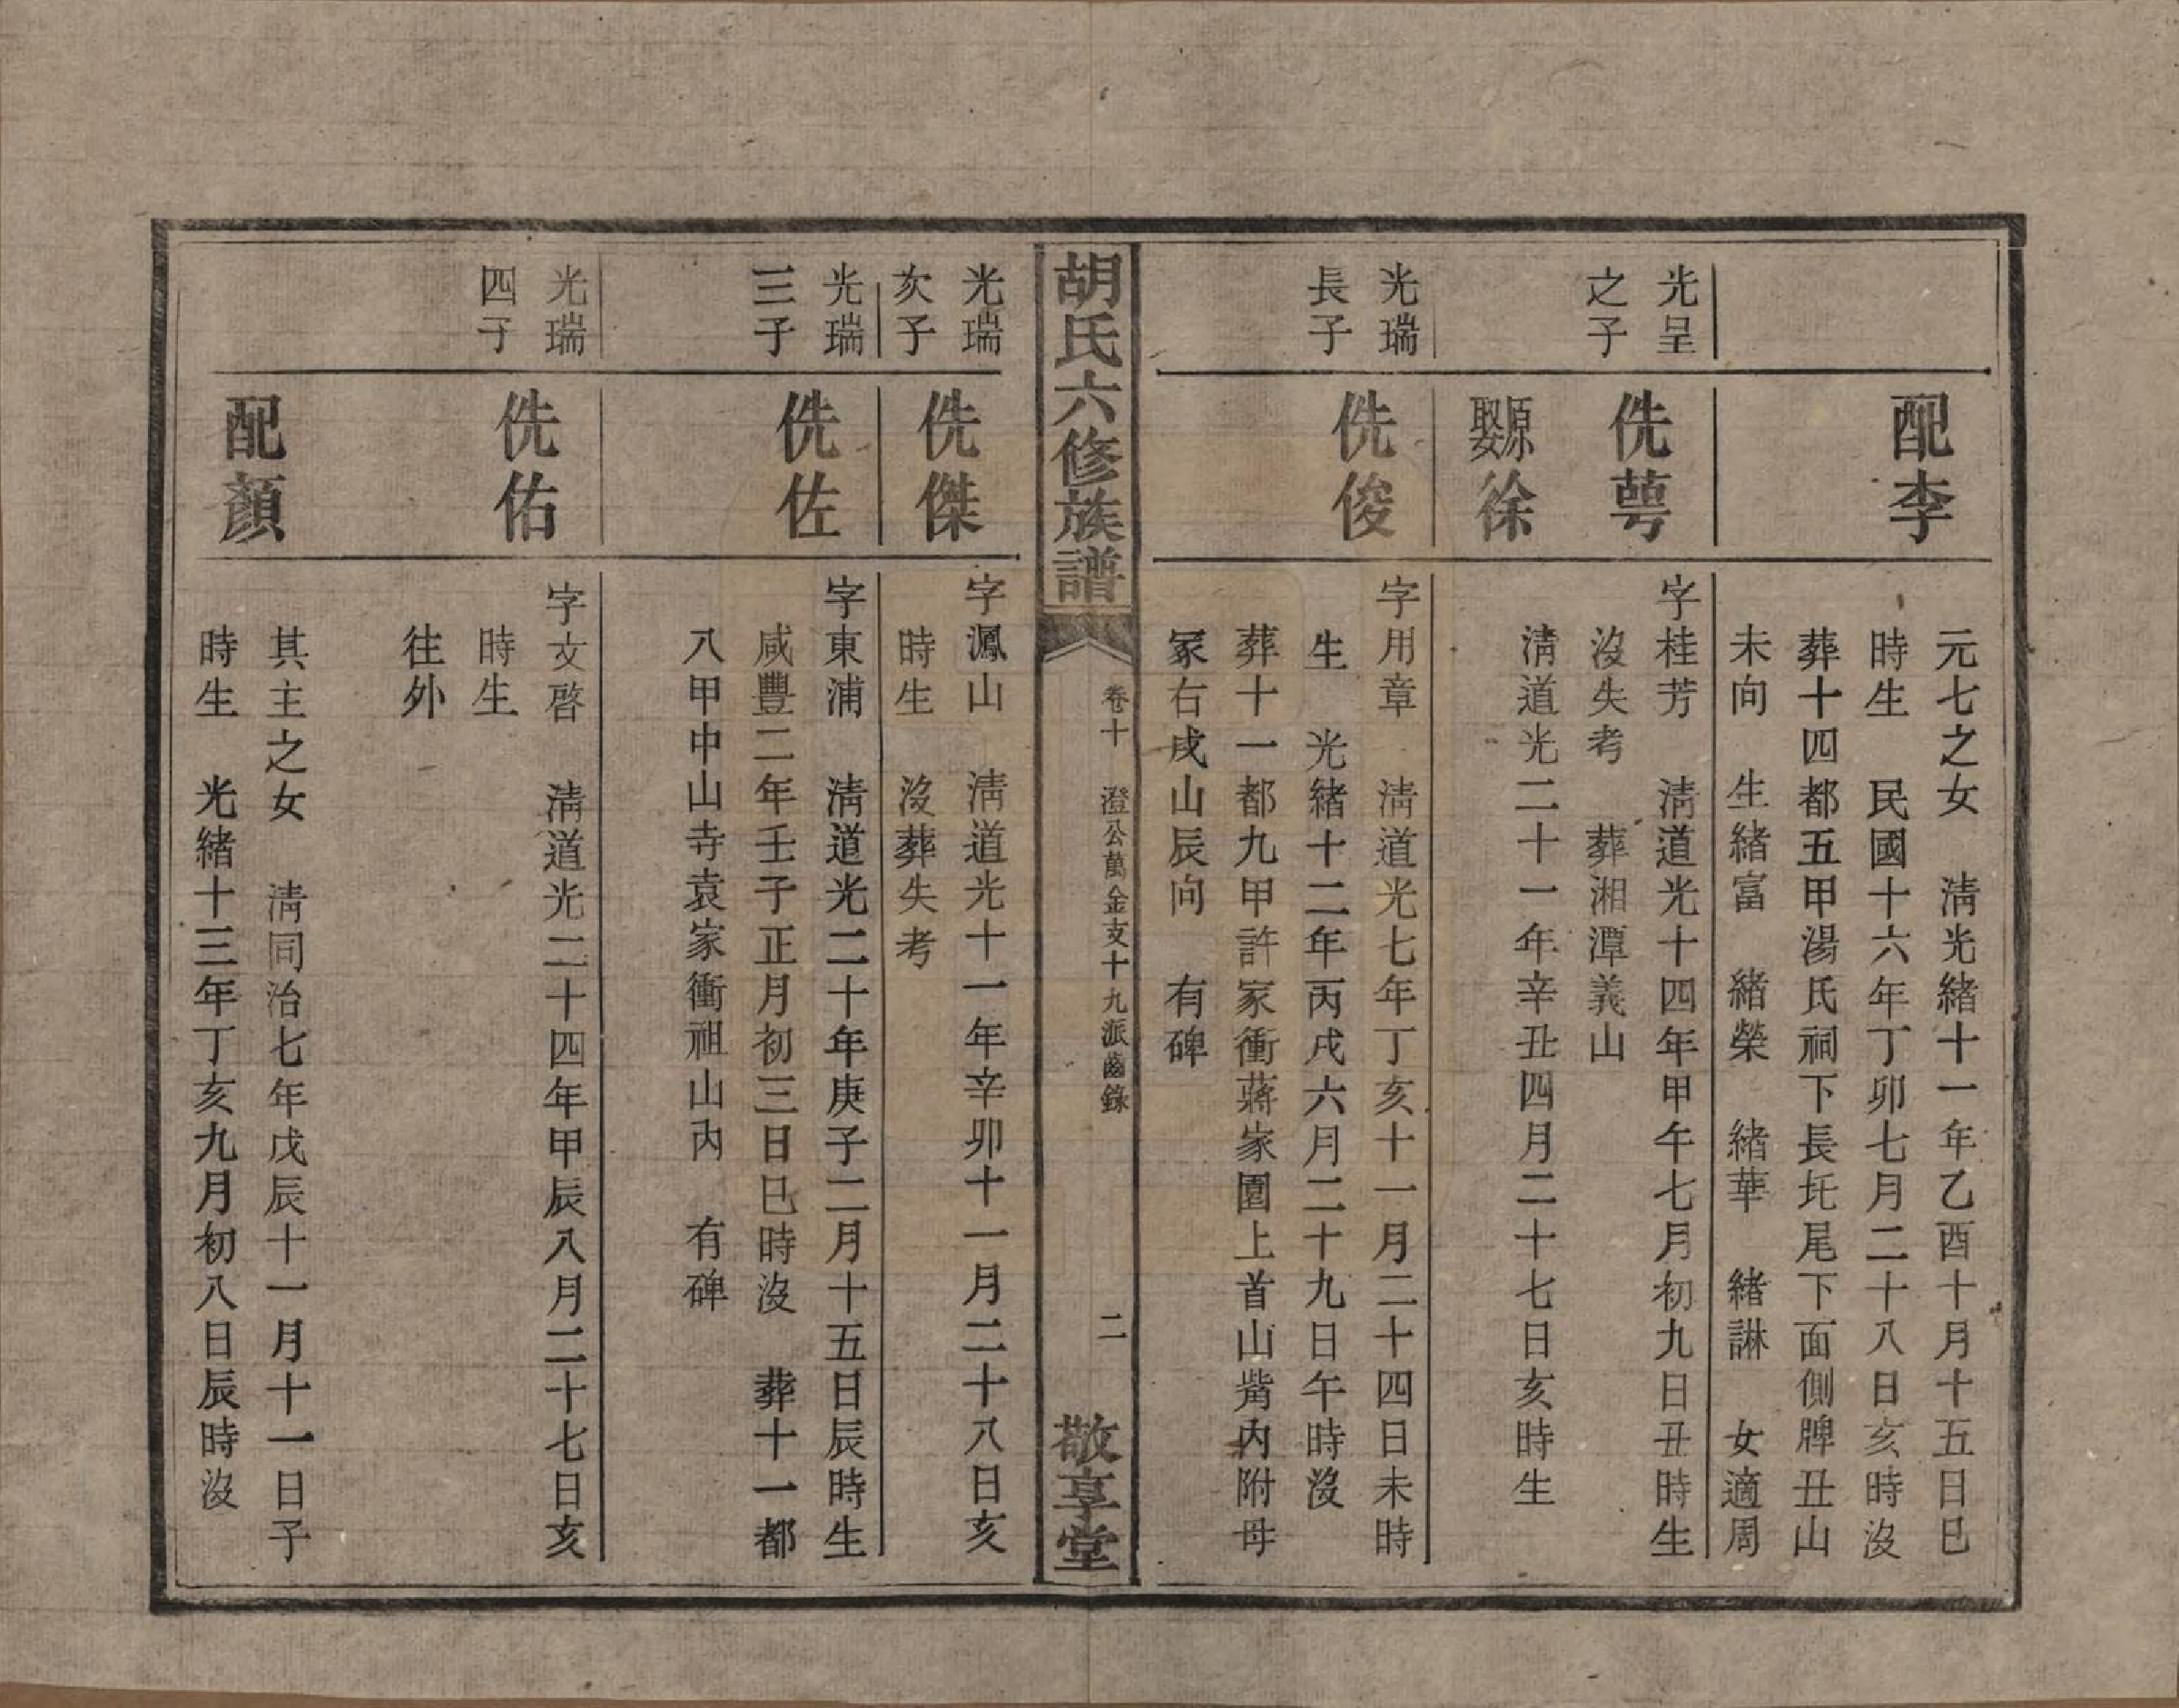 配李
元七之女　清光緒十一年乙酉十月十五日巳
時生　民國十六年丁卯七月二十八日亥時沒
葬十四都五甲湯氏祠下長圫尾下面側牌丑山
未向　生緒富　緒榮　緒華　緒諃　女適周
光呈
之子
侁萼
字桂芳　清道光十四年甲午七月初九日丑時生
沒失考　葬湘潭義山
原娶徐
清道光二十一年辛丑四月二十七日亥時生
光瑞
長子
侁俊
字用章　清道光七年丁亥十一月二十四日未時
生　光緒十二年丙戌六月二十九日午時沒
葬十一都九甲許家衝蔣家園上首山觜內附母
冢右戌山辰向　有碑
胡氏六修族譜
卷十　澄公萬金支十九派齒錄
二
敬享堂
光瑞
次子
侁傑
字鳳山　清道光十一年辛卯十一月二十八日亥
時生　沒葬失考
光瑞
三子
侁佐
字東浦　清道光二十年庚子二月十五日辰時生
咸豐二年壬子正月初三日巳時沒　葬十一都
八甲中山寺袁家衝祖山內　有碑
光瑞
四子
侁佑
字文啓　清道光二十四年甲辰八月二十七日亥
時生
往外
配顏
其主之女　清同治七年戊辰十一月十一日子
時生　光緒十三年丁亥九月初八日辰時沒